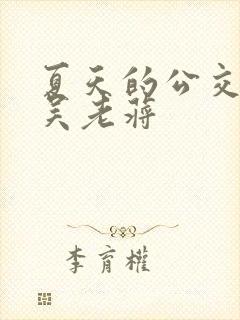 夏天的公交
吴老蒋
李育權